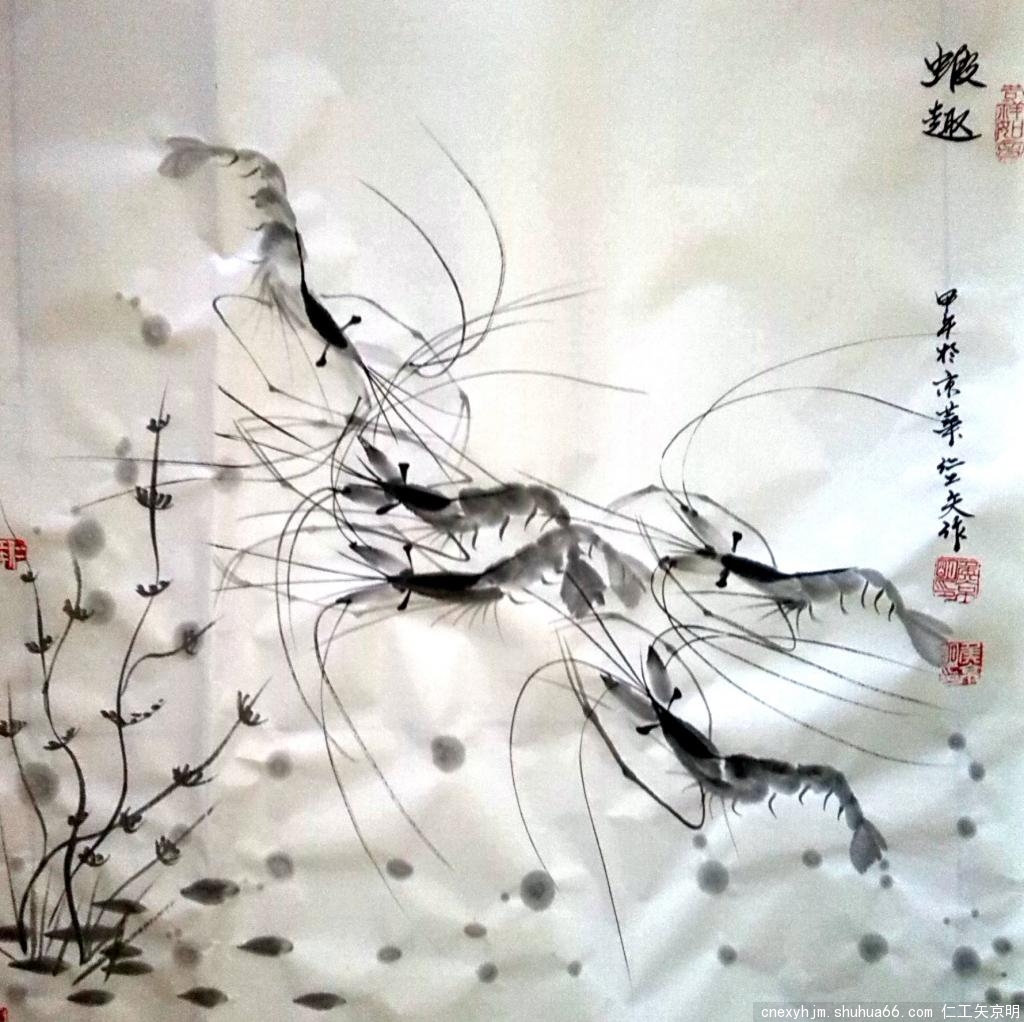 蝦趣
吉祥如意
甲午於京華仁工矢作
cnexyhjm.shuhua66.com 仁工矢京明